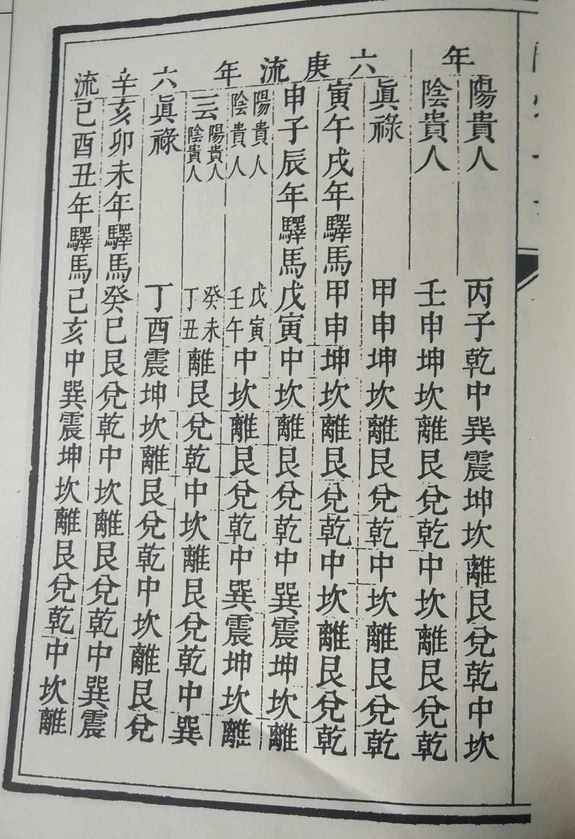 年
陽貴人 丙子乾中巽震坤坎離艮兌乾中坎
陰貴人 壬申坤坎離艮兌乾中坎離艮兌乾
六庚流年
眞祿 甲申坤坎離艮兌乾中坎離艮兌乾
寅午戌年驛馬甲申坤坎離艮兌乾中坎離艮兌乾
申子辰年驛馬戊寅中坎離艮兌乾中巽震坤坎離
陽貴人 戊寅
陰貴人 壬午
中坎離艮兌乾中巽震坤坎離
云
陽貴人 癸未
陰貴人 丁丑
離艮兌乾中坎離艮兌乾中巽
六辛流
眞祿 丁酉震坤坎離艮兌乾中坎離艮兌
亥卯未年驛馬癸巳艮兌乾中坎離艮兌乾中巽震
己酉丑年驛馬己亥中巽震坤坎離艮兌乾中坎離